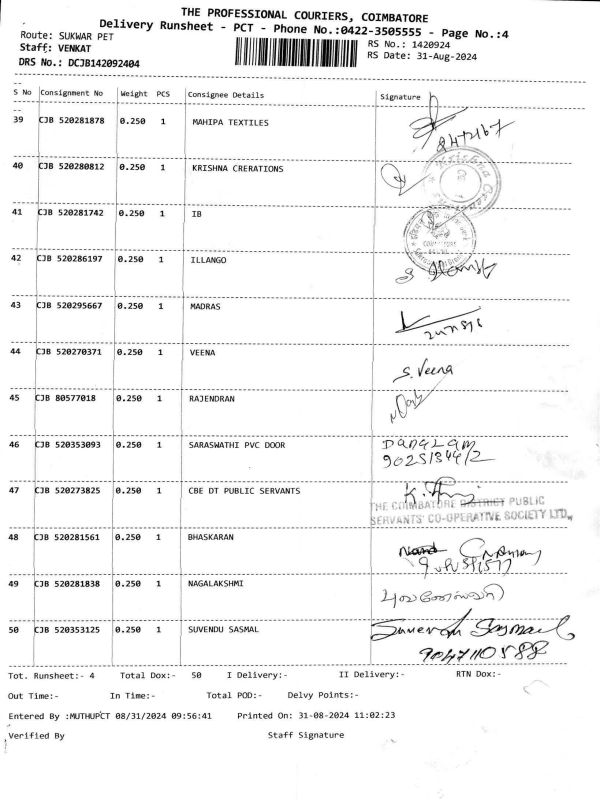 THE PROFESSIONAL COURIERS, COIMBATORE
Delivery Runsheet - PCT - Phone No.:0422-3505555 - Page No.:4
Route: SUKWAR PET RS No.: 1420924
Staff: VENKAT RS Date: 31-Aug-2024
DRS No.: DCJB142092404
S No Consignment No Weight PCS Consignee Details Signature
39 CJB 520281878 0.250 1 MAHIPA TEXTILES
40 CJB 520280812 0.250 1 KRISHNA CRERATIONS
41 CJB 520281742 0.250 1 IB
42 CJB 520286197 0.250 1 ILLANGO
43 CJB 520295667 0.250 1 MADRAS
44 CJB 520270371 0.250 1 VEENA
S. Veena
45 CJB 80577018 0.250 1 RAJENDRAN
46 CJB 520353093 0.250 1 SARASWATHI PVC DOOR
47 CJB 520273825 0.250 1 CBE DT PUBLIC SERVANTS
THE COIMBATORE DISTRICT PUBLIC
SERVANTS' CO-OPERATIVE SOCIETY LTD.,
48 CJB 520281561 0.250 1 BHASKARAN
49 CJB 520281838 0.250 1 NAGALAKSHMI
50 CJB 520353125 0.250 1 SUVENDU SASMAL
9047110588
Tot. Runsheet:- 4 Total Dox:- 50 I Delivery:- II Delivery:- RTN Dox:-
Out Time:- In Time:- Total POD:- Delvy Points:-
Entered By :MUTHUPCT 08/31/2024 09:56:41 Printed On: 31-08-2024 11:02:23
Verified By Staff Signature